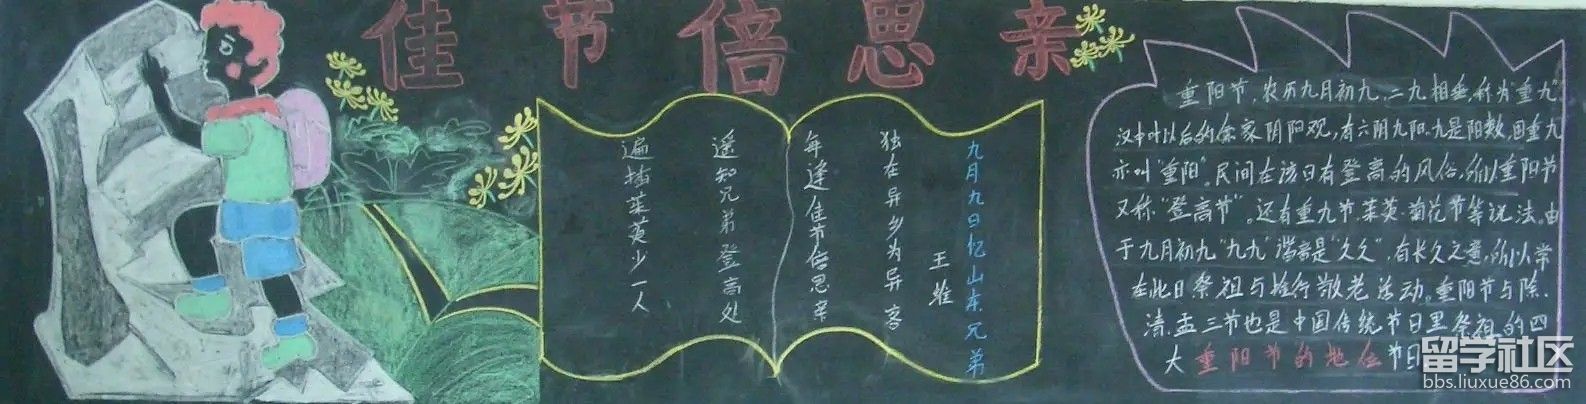 佳节倍思亲
九月九日忆山东兄弟
王维
独在异乡为异客
每逢佳节倍思亲
遥知兄弟登高处
遍插茱萸少一人
重阳节,农历九月初九,二九相重,称为"重九"
汉中叶以后的儒家阴阳观,有六阴九阳。九是阳数,固重九
亦叫"重阳"。民间在该日有登高的风俗,所以重阳节
又称"登高节"。还有重九节、茱萸、菊花节等说法。由
于九月初九"九九"谐音是"久久",有长久之意,所以常
在此日祭祖与推行敬老活动。重阳节与除、
清、盂三节也是中国传统节日里祭祖的四
大重阳节的地位节日
留学社区
bbs.liuxue86.com